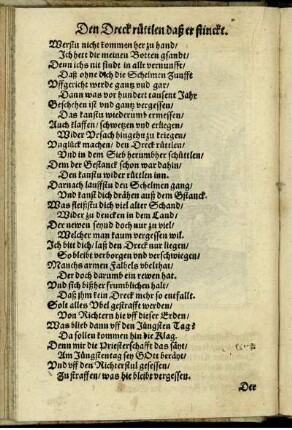 Den Dreck rüttlen daß er stinckt.
Werstu nicht kommen her zu hand/
Ich hett die meinen Botten gsandt/
Denn ichs nit findt in allr vernunfft/
Daß ohne dich die Schelmen Zunfft
Uffgericht werde gantz vnd gar/
Dann was vor hundert tausent Jahr
Geschehen ist vnd gantz vergessen/
Das kanstu wiederumb ermessen/
Auch klaffen/ schwetzen vnd erliegen/
Wider Vrsach hingehn zu kriegen/
Vnglück machen/ den Dreck rüttlen/
Vnd in dem Sieb herumbher schüttlen/
Dem der Gestanck schon war dahin/
Den kanstu wider rüttlen inn.
Darnach lauffstu den Schelmen gang/
Vnd kanst dich drähen auß dem Gstanck.
Was fleißstu dich viel alter Schand/
Wider zu ernewen in dem Land/
Der newen seynd doch nur zu viel/
Welcher man kaum vergessen wil.
Ich bitt dich/ laß den Dreck nur liegen/
So bleibt verborgen vnd verschwiegen/
Manchs armen Falbels vbelthat/
Der doch darumb ein rewen hat.
Vnd sich bißher frumblichen halt/
Daß jhm kein Dreck mehr so entfallt.
Solt alles Vbel gestrafft werden/
Von Richtern hie vff dieser Erden/
Was blieb dann vff den Jüngsten Tag?
Da sollen kommen hin die Klag.
Denn mir die Priesterschafft das säyt/
Am Jüngstentag sey GOtt beräyt/
Vnd vff den Richterstul gesessen/
Zu straffen/ was hie bleibt vergessen.
Der